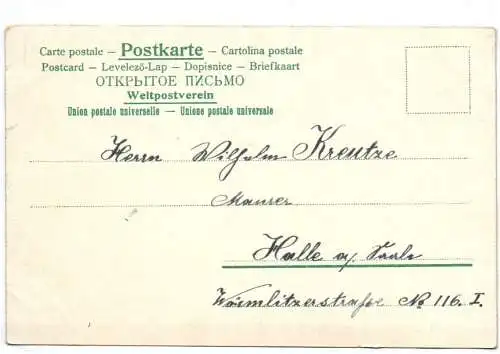 Carte postale – Postkarte – Cartolina postale
Postcard – Levelező-Lap – Dopisnice – Briefkaart
ОТКРЫТОЕ ПИСЬМО
Weltpostverein
Union postale universelle – Unione postale universale
Herrn Wilhelm Kreutze
Maurer
Halle a/ Saale
Wörmlitzerstraße No 116. I.